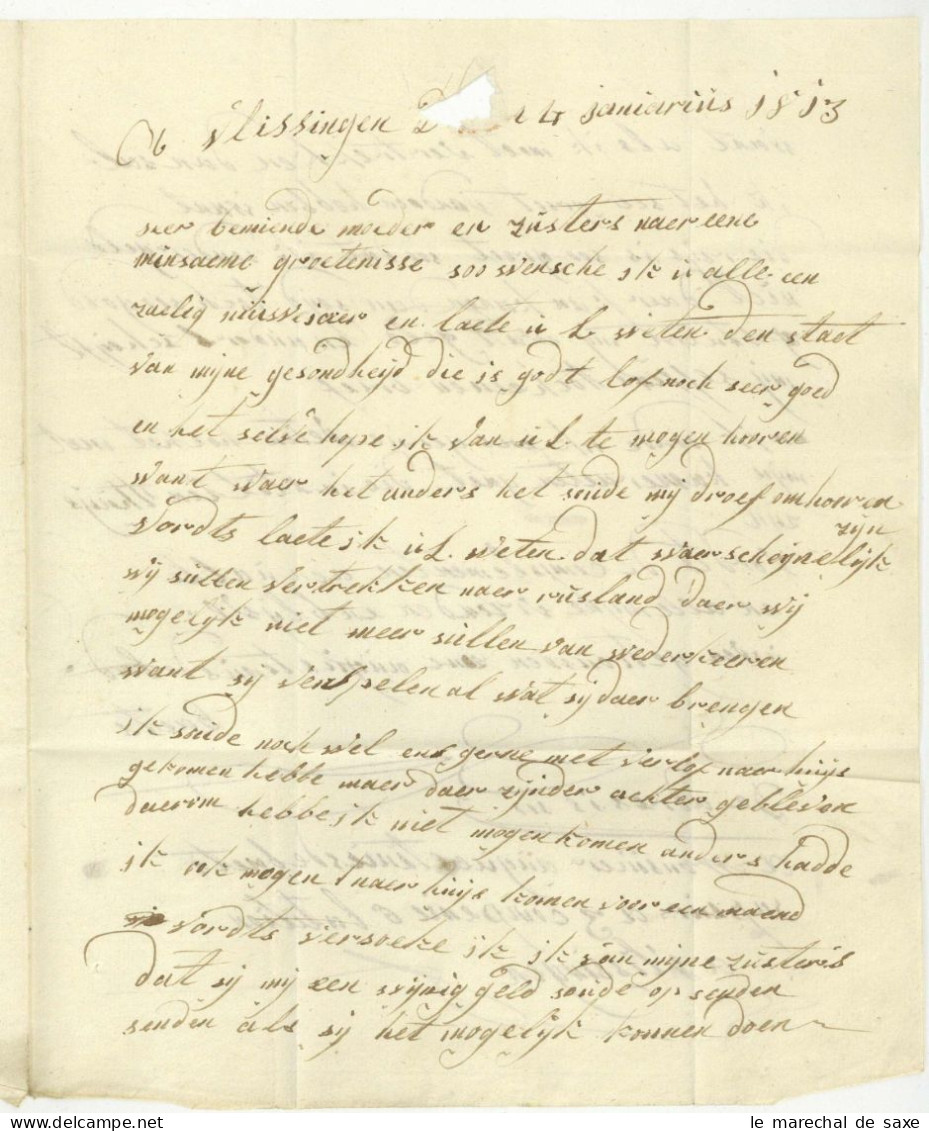 vlissingen D 4 januariüs 1813
seer beminde moeder en züsters naer eene
minsaeme groetenisse soo wensche ik ü alle een
zaelig nüüwejaer en laete ü L weten den staet
van mijne gesondheijd die is godt lof noch seer goed
en het selve hope ik van ü L te mogen hooren
want waer het anders het soüde mij droef om hooren
zijn
vordts laete ik ü L weten dat waerscheijnelijk
wij süllen vertrekken naer rüsland daer wij
mogelijk niet meer süllen van wederkeeren
want sij verspelen al wat sij daer brengen
ik soüde noch wel ens gerne met verlof naer huijs
gekomen hebbe maer daer zijnder achter gebleven
daerom hebbe ik niet mogen komen anders hadde
ik ook mogen naer huijs komen voor een maend
vordts versoeke ik ik van mijne züsters
dat sij mij een wijnig geld soüde op senden
senden als sij het mogelijk konnen doen
le marechal de saxe